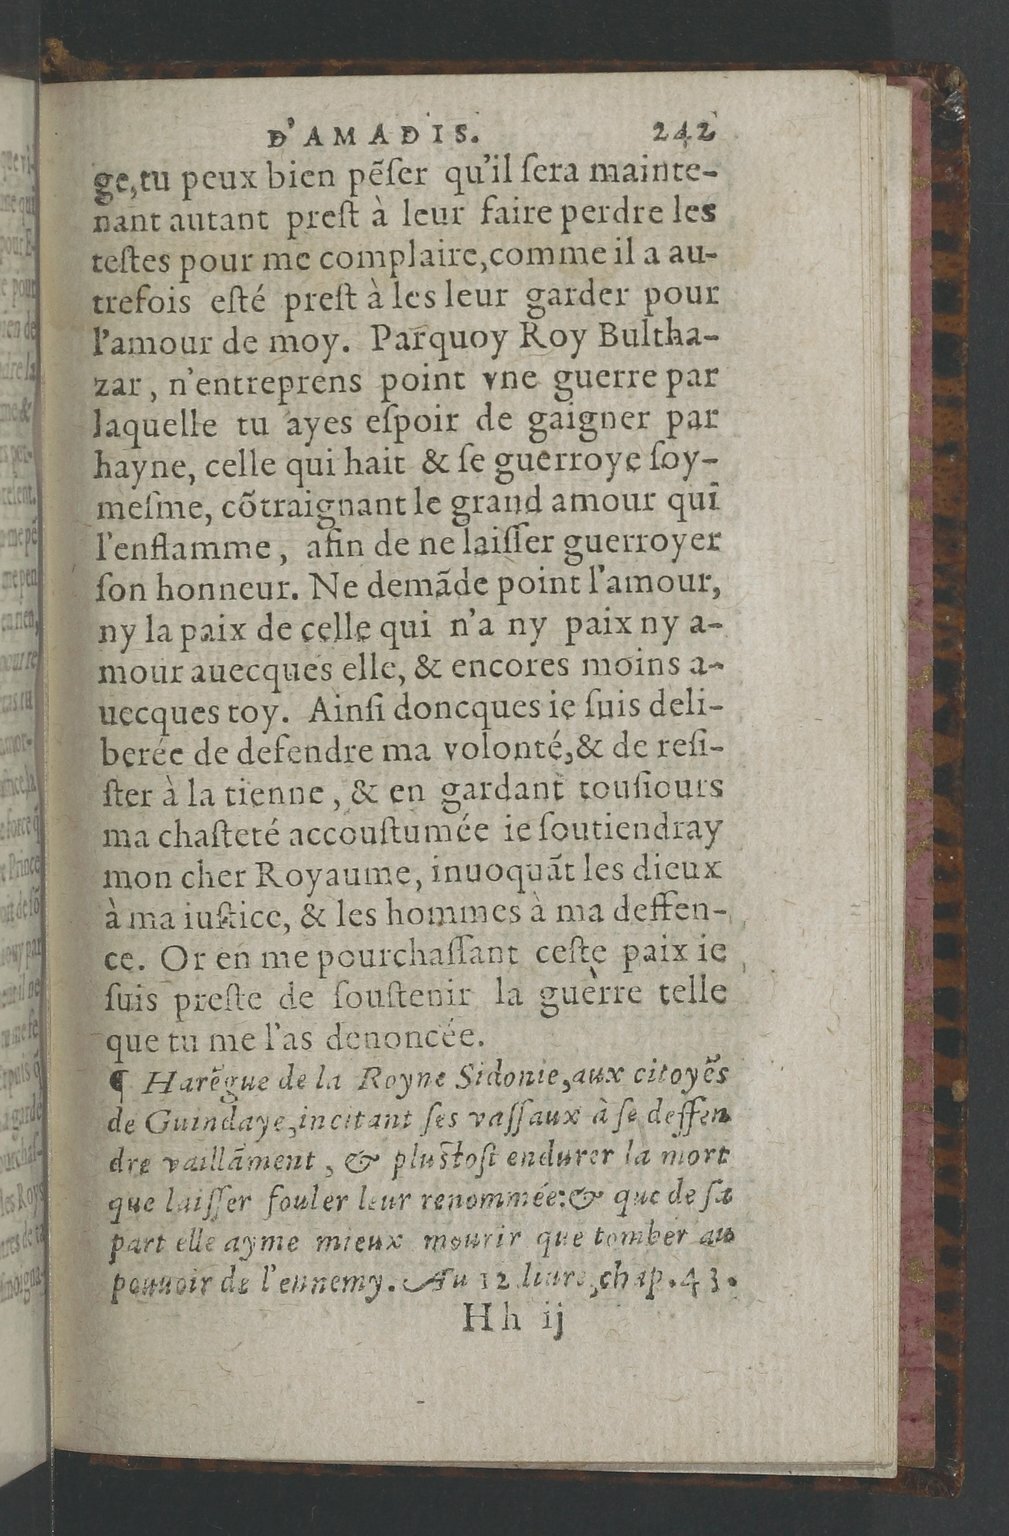 D'AMADIS. 242
ge, tu peux bien pẽſer qu'il ſera mainte-
nant autant preſt à leur faire perdre les
teſtes pour me complaire, comme il a au-
trefois eſté preſt à les leur garder pour
l'amour de moy. Parquoy Roy Bultha-
zar, n'entreprens point vne guerre par
laquelle tu ayes eſpoir de gaigner par
hayne, celle qui hait & ſe guerroye ſoy-
meſme, cõtraignant le grand amour qui
l'enflamme, afin de ne laiſſer guerroyer
ſon honneur. Ne demãde point l'amour,
ny la paix de celle qui n'a ny paix ny a-
mour auecques elle, & encores moins a-
uecques toy. Ainſi doncques ie ſuis deli-
berée de defendre ma volonté, & de reſi-
ſter à la tienne, & en gardant touſiours
ma chaſteté accouſtumée ie ſoutiendray
mon cher Royaume, inuoquãt les dieux
à ma iuſtice, & les hommes à ma deffen-
ce. Or en me pourchaſſant ceſte paix ie
ſuis preſte de ſouſtenir la guerre telle
que tu me l'as denoncée.
¶ Harẽgue de la Royne Sidonie, aux citoyẽs
de Guindaye, incitant ſes vaſſaux à ſe deffen
dre vaillãment, & pluſtoſt endurer la mort
que laiſſer fouler leur renommée: & que de ſa
part elle ayme mieux mourir que tomber au
pouuoir de l'ennemy. Au 12 liure, chap. 43.
Hh ij